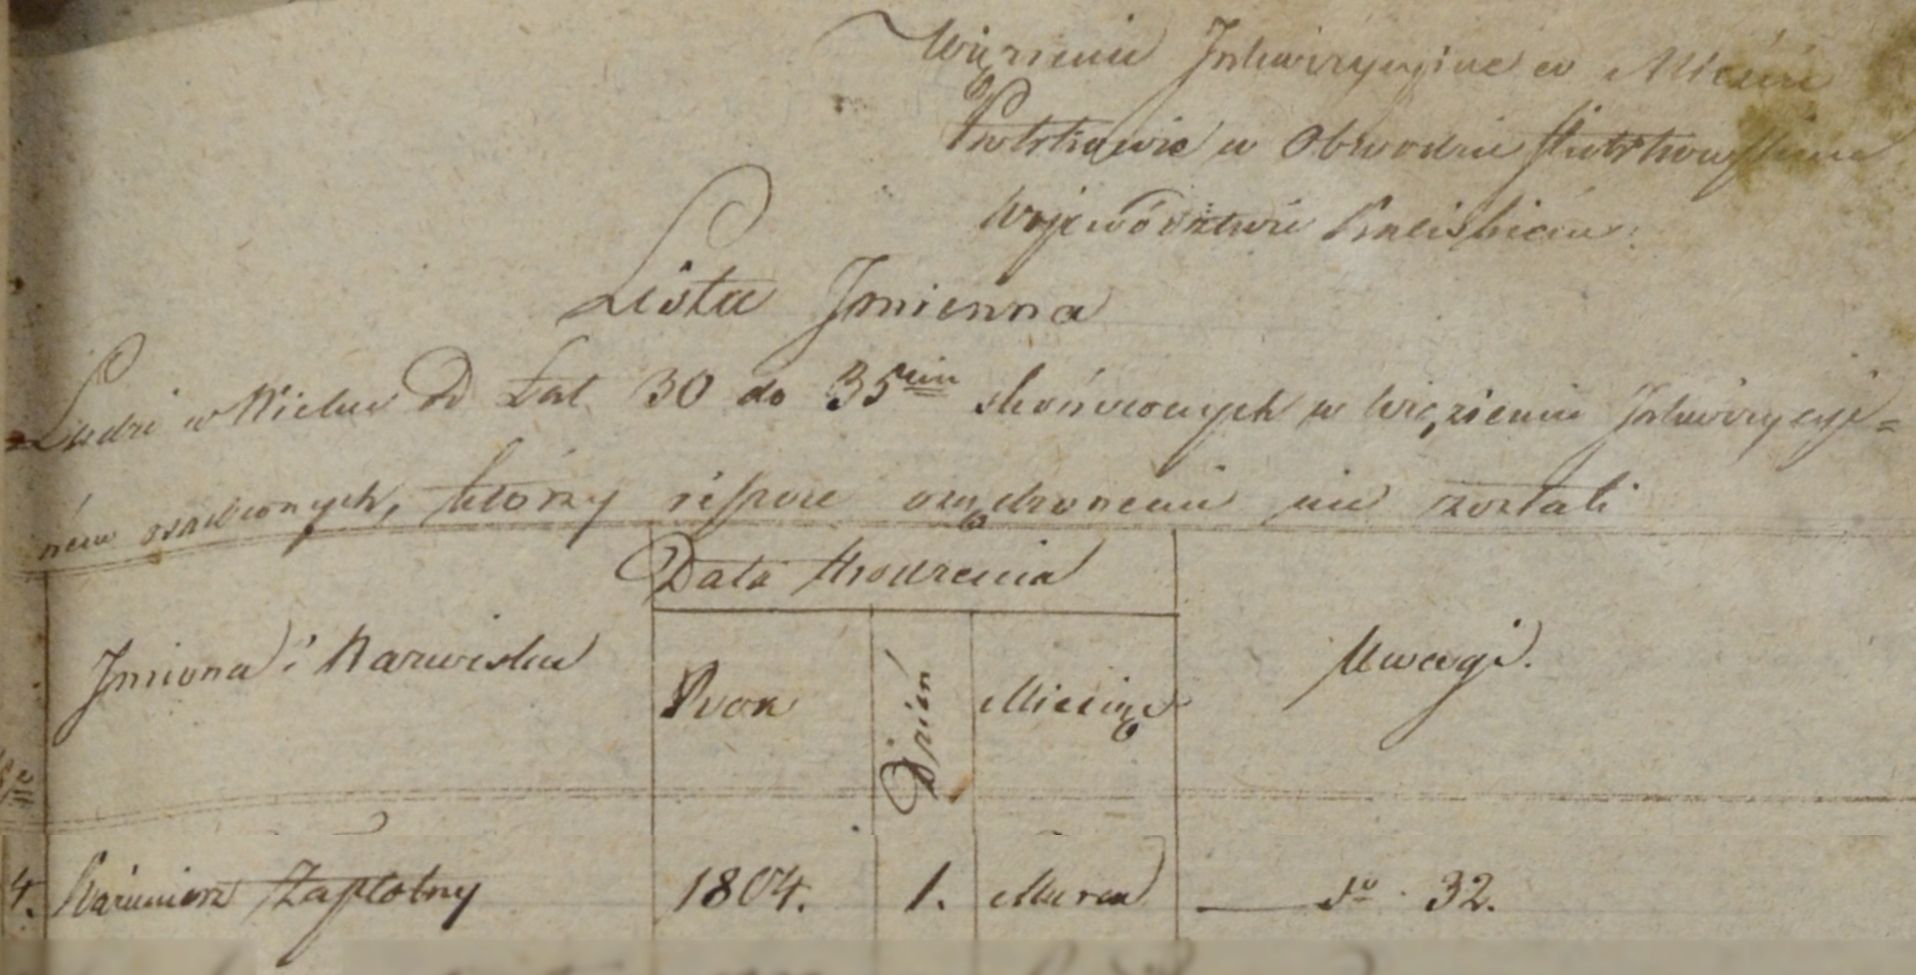 Więzienie Inkwizycyine w Mieście
Piotrkowie w Obwodzie Piotrkowskiem
Województwie Kaliskiem.
Lista Jmienna
Ludzi w Wieku Od Lat 30 do 35ciu skończonych w Więzieniu Inkwizycyj=
nem osadzonych, którzy ieszcze osądzonemi nie zostali
Data Urodzenia
Jmiona i Nazwiska
Rok
Dzień
Miesiąc
Uwagi.
4. Kaźimierz Zapłotny 1804. 1. Marca — do. 32.